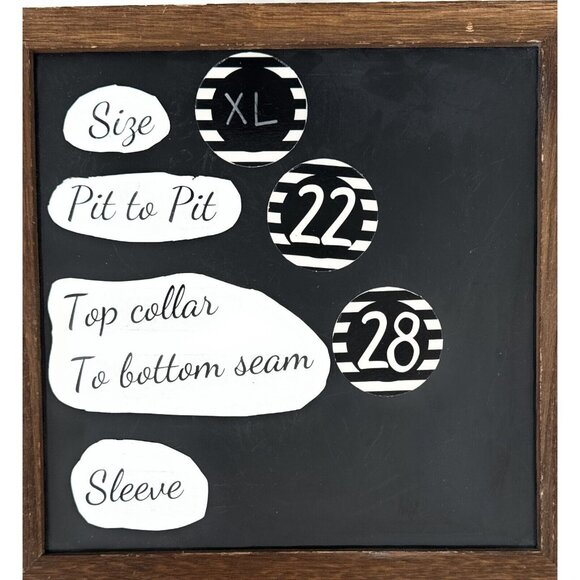 Size XL
Pit to Pit 22
Top collar
To bottom seam 28
Sleeve